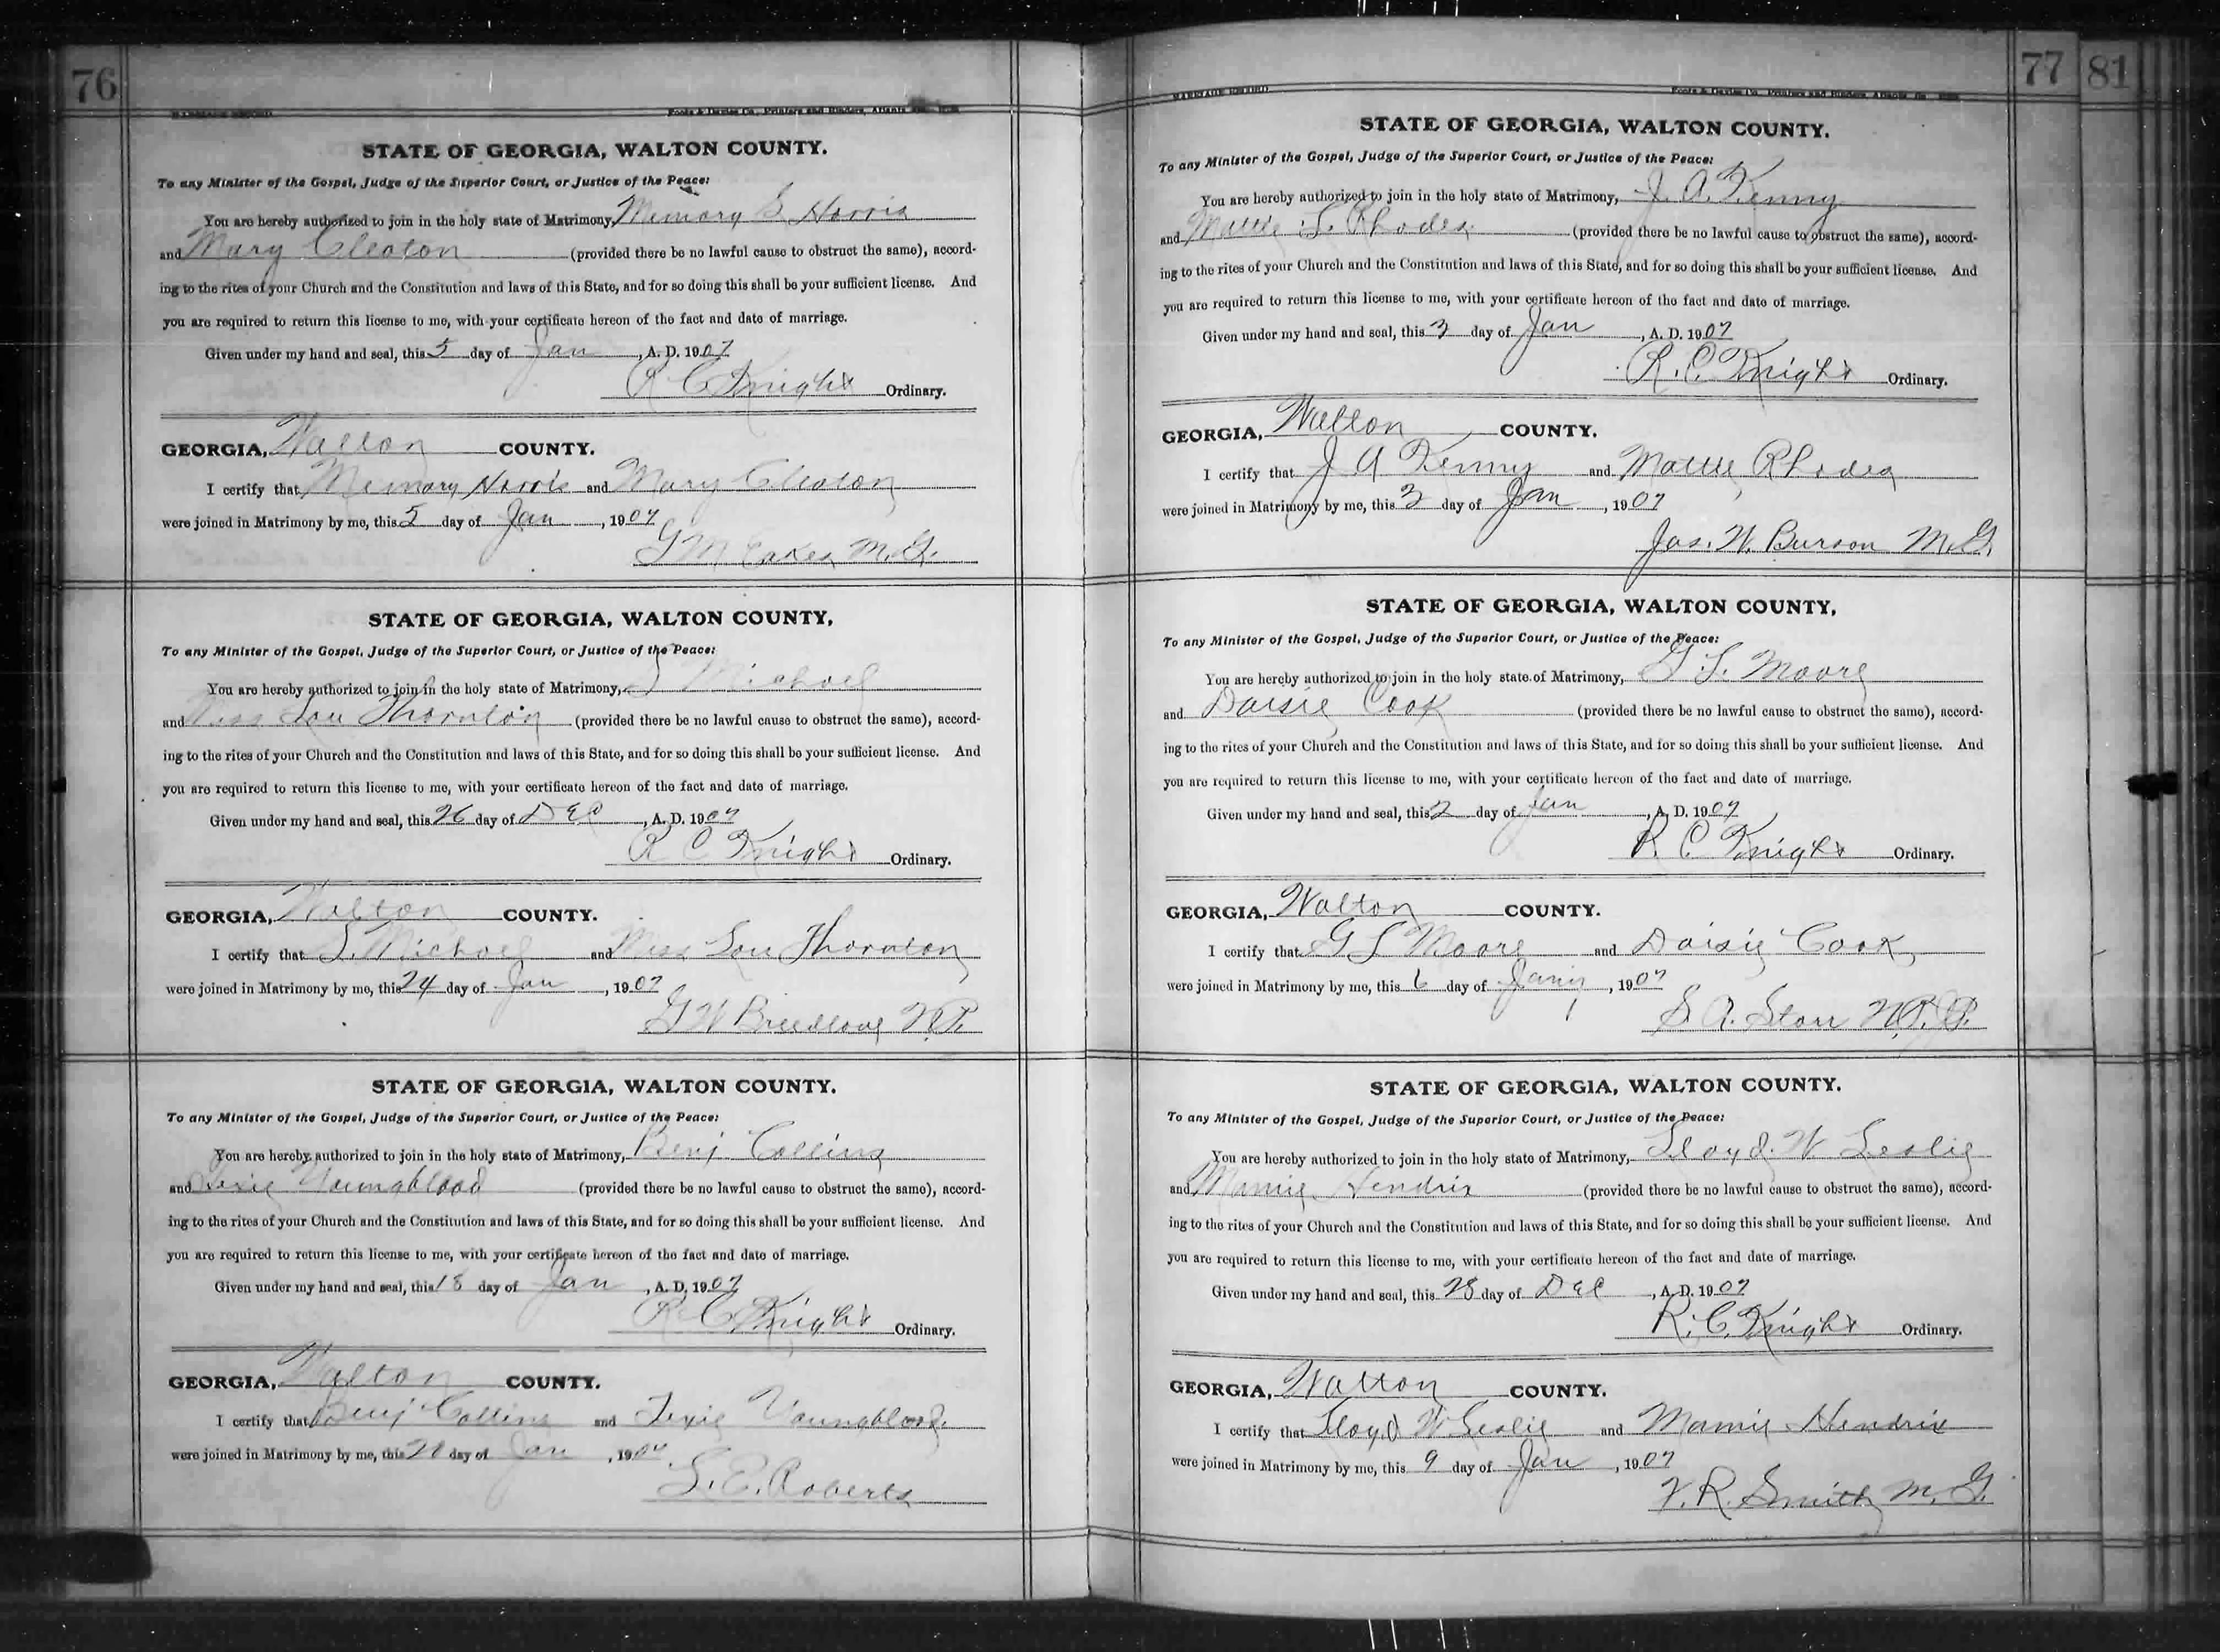 76
MARRIAGE RECORD Foote & Davies Co., Printers and Binders, Atlanta
STATE OF GEORGIA, WALTON COUNTY.
To any Minister of the Gospel, Judge of the Superior Court, or Justice of the Peace:
You are hereby authorized to join in the holy state of Matrimony, Memory S. Harris
and Mary Cleaton (provided there be no lawful cause to obstruct the same), accord-
ing to the rites of your Church and the Constitution and laws of this State, and for so doing this shall be your sufficient license. And
you are required to return this license to me, with your certificate hereon of the fact and date of marriage.
Given under my hand and seal, this 5 day of Jan, A. D. 1907
R C Knight Ordinary.
GEORGIA, Walton COUNTY.
I certify that Memory Harris and Mary Cleaton
were joined in Matrimony by me, this 5 day of Jan, 1907
G M Eakes M.G.
STATE OF GEORGIA, WALTON COUNTY,
To any Minister of the Gospel, Judge of the Superior Court, or Justice of the Peace:
You are hereby authorized to join in the holy state of Matrimony, Michael
and Miss Lou Thornton (provided there be no lawful cause to obstruct the same), accord-
ing to the rites of your Church and the Constitution and laws of this State, and for so doing this shall be your sufficient license. And
you are required to return this license to me, with your certificate hereon of the fact and date of marriage.
Given under my hand and seal, this 26 day of Dec, A. D. 1907
R C Knight Ordinary.
GEORGIA, Walton COUNTY.
I certify that Michael and Miss Lou Thornton
were joined in Matrimony by me, this 24 day of Jan, 1907
G W Breedlove N.P.
STATE OF GEORGIA, WALTON COUNTY.
To any Minister of the Gospel, Judge of the Superior Court, or Justice of the Peace:
You are hereby authorized to join in the holy state of Matrimony, Benj Collins
and Lexie Youngblood (provided there be no lawful cause to obstruct the same), accord-
ing to the rites of your Church and the Constitution and laws of this State, and for so doing this shall be your sufficient license. And
you are required to return this license to me, with your certificate hereon of the fact and date of marriage.
Given under my hand and seal, this 18 day of Jan, A. D. 1907
R C Knight Ordinary.
GEORGIA, Walton COUNTY.
I certify that Benj Collins and Lexie Youngblood.
were joined in Matrimony by me, this 20 day of Jan, 1907.
S. E. Roberts
77 81
MARRIAGE RECORD Foote & Davies Co., Printers and Binders, Atlanta
STATE OF GEORGIA, WALTON COUNTY.
To any Minister of the Gospel, Judge of the Superior Court, or Justice of the Peace:
You are hereby authorized to join in the holy state of Matrimony, J. A. Kenny
and Mattie L. Rhodes (provided there be no lawful cause to obstruct the same), accord-
ing to the rites of your Church and the Constitution and laws of this State, and for so doing this shall be your sufficient license. And
you are required to return this license to me, with your certificate hereon of the fact and date of marriage.
Given under my hand and seal, this 3 day of Jan, A. D. 1907
R. C. Knight Ordinary.
GEORGIA, Walton COUNTY.
I certify that J A Kenny and Mattie Rhodes
were joined in Matrimony by me, this 3 day of Jan, 1907
Jas. W. Burson M.G.
STATE OF GEORGIA, WALTON COUNTY,
To any Minister of the Gospel, Judge of the Superior Court, or Justice of the Peace:
You are hereby authorized to join in the holy state of Matrimony, G. L. Moore
and Daisie Cook (provided there be no lawful cause to obstruct the same), accord-
ing to the rites of your Church and the Constitution and laws of this State, and for so doing this shall be your sufficient license. And
you are required to return this license to me, with your certificate hereon of the fact and date of marriage.
Given under my hand and seal, this 2 day of Jan, A. D. 1907
R. C Knight Ordinary.
GEORGIA, Walton COUNTY.
I certify that G L Moore and Daisie Cook
were joined in Matrimony by me, this 6 day of Jany, 1907
S. A. Starr N.P.J.P.
STATE OF GEORGIA, WALTON COUNTY.
To any Minister of the Gospel, Judge of the Superior Court, or Justice of the Peace:
You are hereby authorized to join in the holy state of Matrimony, Lloyd. W Leslie
and Mamie Hendrix (provided there be no lawful cause to obstruct the same), accord-
ing to the rites of your Church and the Constitution and laws of this State, and for so doing this shall be your sufficient license. And
you are required to return this license to me, with your certificate hereon of the fact and date of marriage.
Given under my hand and seal, this 28 day of Dec, A. D. 1907
R. C. Knight Ordinary.
GEORGIA, Walton COUNTY.
I certify that Lloyd W Leslie and Mamie Hendrix
were joined in Matrimony by me, this 9 day of Jan, 1907
V. R. Smith M. G.